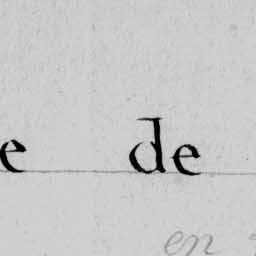 e de
en